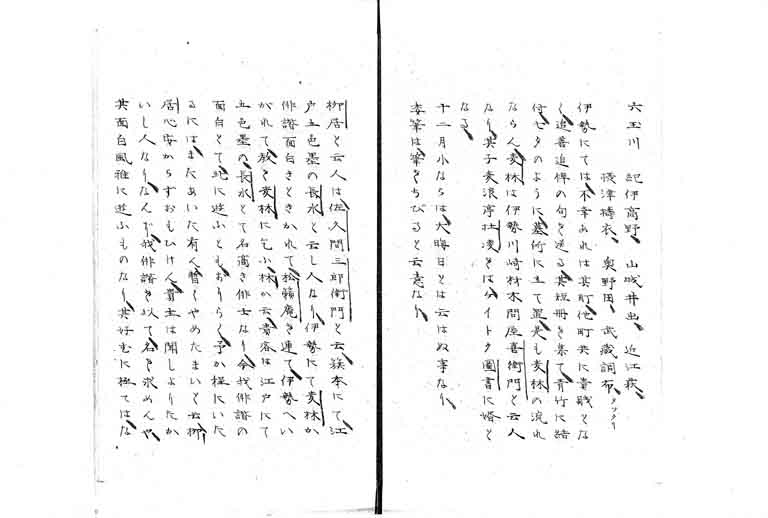 六玉川　紀伊高野、山城井出、近江萩、
摂津擣衣、奥野田、武蔵調布、タツクリ
伊勢にては不幸あれは其町他町共に貴賤とな
く追善追悼の句を送る其短冊を集て青竹に結
付七夕のように墓所に立て置是も麦林の流れ
ならん麦林は伊勢川崎材木問屋喜衛門と云人
なり其子麦浪亭はイトク図書に婿と
なる
十二月小ならは大晦日とは云はぬ事なり
委筆は筆をちびると云意なり
柳居と云人は佐久間三郎衛門と云籏本にて江
戸五色墨の長水と云し人なり伊勢にて麦林か
俳諧面白きときかれて松籟庵を連て伊勢へい
かれて教を麦林に乞ふ林か云貴客は江戸にて
五色墨の長水とて名高き俳士なり今我俳諧の
面白とて此に遊ふともおりらく予か様にいた
るにはまたあいた有ん暫くやめたまいと云柳
居心安からすおもひけん貴士は聞しよりたか
いし人なりなんぞ我俳諧を以て名を求めんや
其面白風雅に遊ふものなり其好むに極てはな